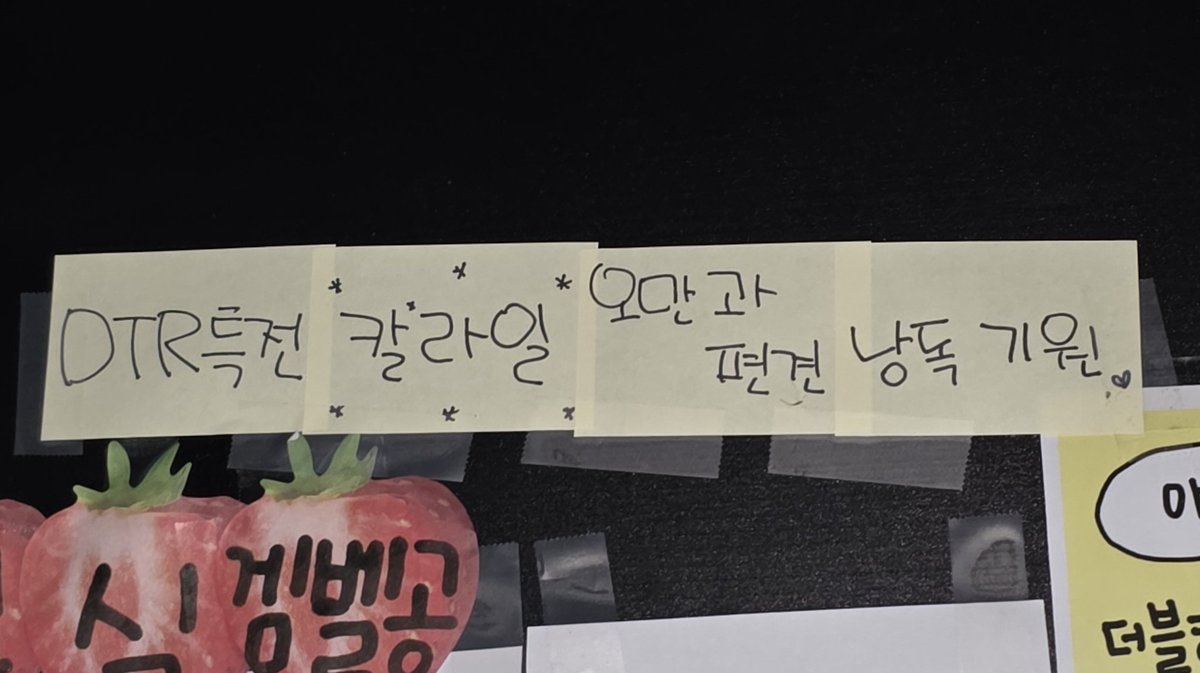 DTR특전
칼라일
오만과
편견
낭독 기원
심
겜베공
더블